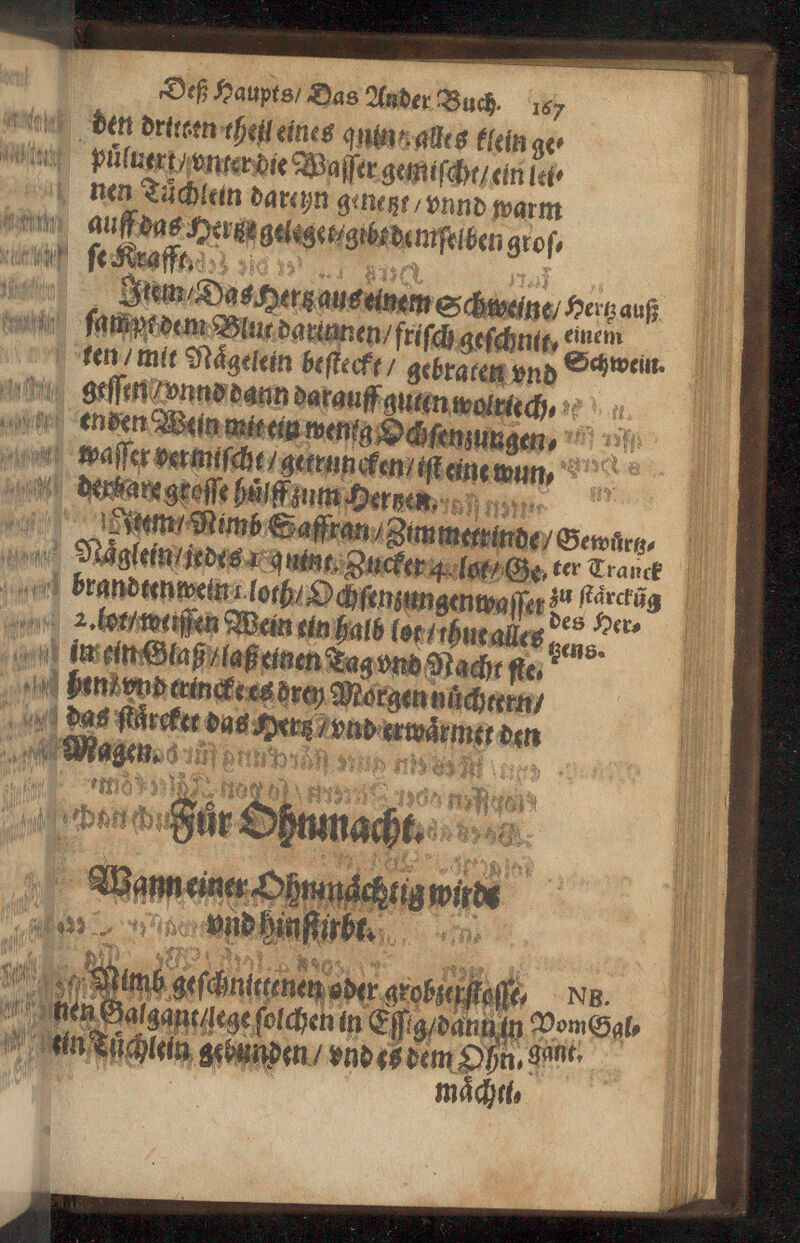 Deß Haupts/ Das Ander Buch. 167
den dritten theil eines quint: alles klein ge⸗
puͤluert/ vnter die Waſſer gemiſcht/ ein lei⸗
nen Tuͤchlein dareyn genetzt/ vnnd warm
auff das Hertz geleget/ gibt demſelben groſ⸗
ſe Krafft.
Item/ Das Hertz aus einem Schweine/
ſampt dem Blut darinnen/ friſch geſchnit⸗
ten/ mit Naͤgelein beſteckt/ gebraten vnd
geſſen/ vnnd dann darauff guten wolriech⸗
enden Wein mit ein wenig Ochſenzungen⸗
waſſer vermiſcht/ getruncken/ iſt eine wun⸗
derbare groſſe huͤlff zum Hertzen.
Hertz auß
einem
Schwein.
Item/ Nimb Saffran/ Zimmetrinde/
Naͤglein/ jedes 1. quint. Zucker 4. lot/ Ge⸗
brandtenwein 1. loth/ Ochſenzungenwaſſer
2. lot/ weiſſen Wein ein halb lot/ thue alles
in ein Glaß/ laß einen Tag vnd Nacht ſte⸗
hen/ vnd trincke es drey Morgen nuͤchtern/
das ſtaͤrcket das Hertz/ vnd erwaͤrmet den
Magen.
Gewuͤrtz⸗
ter Tranck
zu ſtaͤrckũg
des Her⸗
tzens.
Fuͤr Ohnmacht.
Wann einer Ohnmaͤchtig wirdt
vnd hinſtirbt.
Nimb geſchnittenen oder grobzerſtoſſe⸗
nen Galgant/ lege ſolchen in Eſſig/ dann in
ein Tuͤchlein gebunden/ vnd es dem Ohn⸗
NB.
Vom Gal⸗
gant.
maͤchti⸗